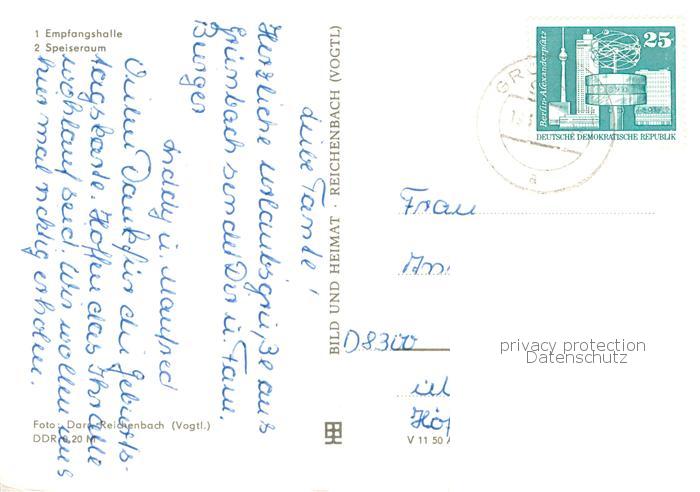 1 Empfangshalle
2 Speiseraum
Liebe Tante!
Herzliche Urlaubsgrüße aus
Grünbach sendet Dir u. Fam.
Burger
Andy u. Manfred
Vielen Dank für die Geburts-
tagskarte. Hoffen das Ihr alle
wohlauf seid. Wir wollen uns
hier mal richtig erholen.
Foto: Darr Reichenbach (Vogtl.)
DDR 0,20 M
BILD UND HEIMAT · REICHENBACH (VOGTL)
V 11 50
25
Berlin-Alexanderplatz
DEUTSCHE DEMOKRATISCHE REPUBLIK
GR
a
Frau
D8300
privacy protection
Datenschutz